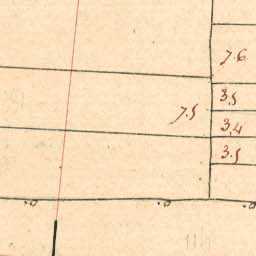 7.6
3.5
7.5
3.4
3.5